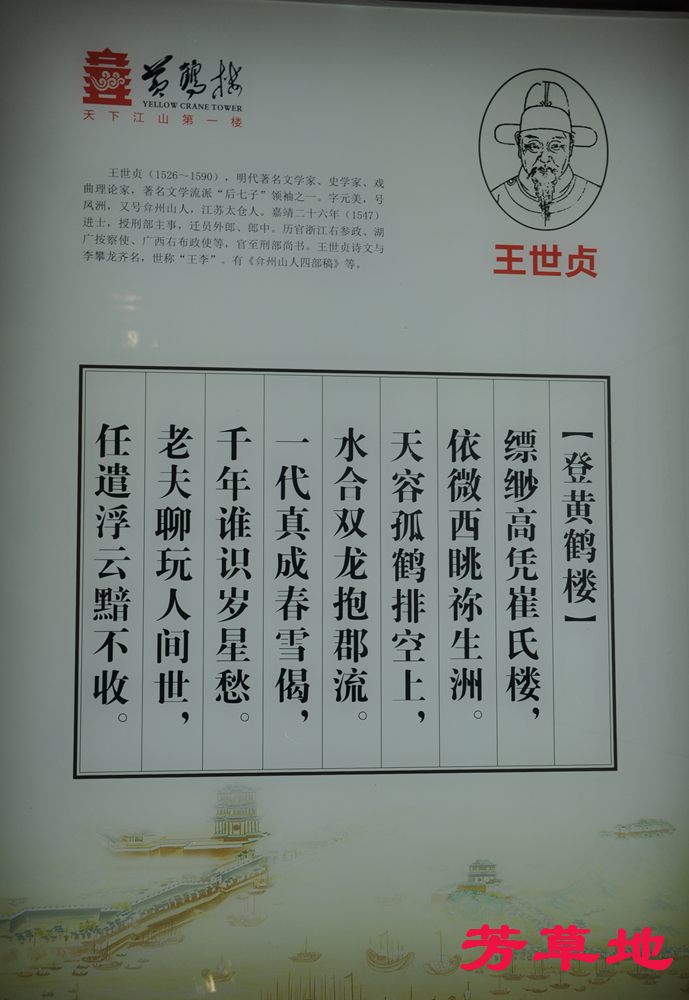 黄鹤楼
YELLOW CRANE TOWER
天下江山第一楼
王世贞（1526～1590），明代著名文学家、史学家、戏
曲理论家，著名文学流派“后七子”领袖之一。字元美，号
凤洲，又号弇州山人，江苏太仓人。嘉靖二十六年（1547）
进士，授刑部主事，迁员外郎、郎中。历官浙江右参政、湖
广按察使、广西右布政使等，官至刑部尚书。王世贞诗文与
李攀龙齐名，世称“王李”。有《弇州山人四部稿》等。
王世贞
【登黄鹤楼】
缥缈高凭崔氏楼，
依微西眺祢生洲。
天容孤鹤排空上，
水合双龙抱郡流。
一代真成春雪偈，
千年谁识岁星愁。
老夫聊玩人间世，
任遣浮云黯不收。
芳草地